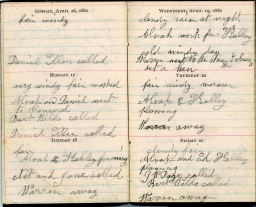 SUNDAY, APRIL 16, 1882
fair windy
Daniel Ellen called
MONDAY 17
very windy fair washed
Alvah Daniel went
to
Bert Wilds called
Daniel Ellen called
TUESDAY 18
fair
Alvah & Holley
Nat and Jane called
Warren away
WEDNESDAY, APRIL 19, 1882
cloudy rain at night
Alvah work for Holley
cold windy day
Warren went to the
set a hen
THURSDAY 20
fair windy warmer
Alvah & Holley
plowing
Warren away
FRIDAY 21
cloudy fair
Alvah and Ed Holley
plowing
called
Bert Wilds called
Warren away